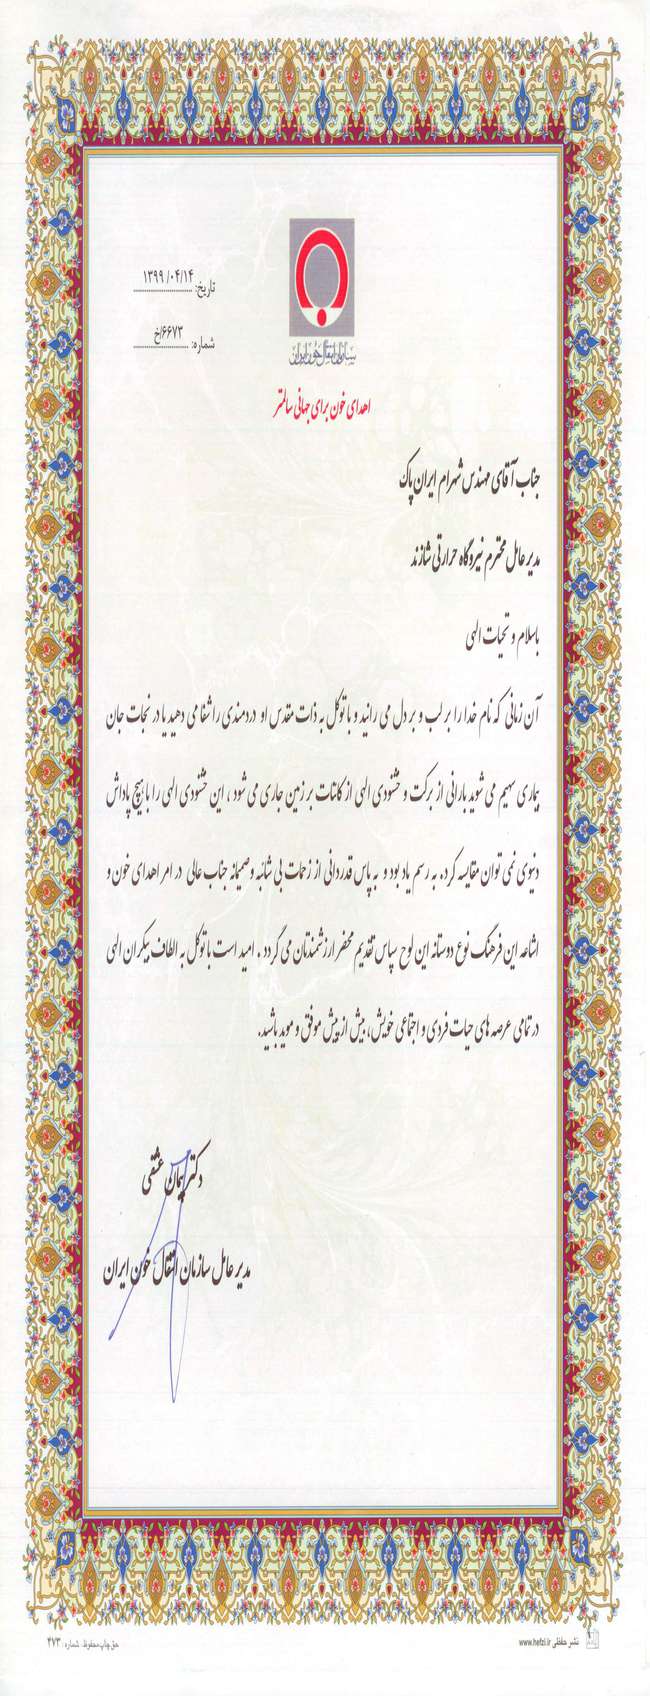 تاریخ: ۱۳۹۹/۰۴/۱۴
شماره: ۶۶۷۳/خ
سازمان انتقال خون ایران
اهدای خون برای جهانی سالمتر
جناب آقای مهندس شهرام ایران پاک
مدیر عامل محترم نیروگاه حرارتی شازند
باسلام و تحیات الهی
آن زمانی که نام خدا را بر لب و بر دل می رانید و با توکل به ذات مقدس او دردمندی را شفا می دهید یا در نجات جان
بیماری سهیم می شوید بارانی از برکت و خشنودی الهی از کائنات بر زمین جاری می شود ، این خشنودی الهی را با هیچ پاداش
دنیوی نمی توان مقایسه کرد، به رسم یاد بود و به پاس قدردانی از زحمات بی شائبه و صمیمانه جناب عالی در امر اهدای خون و
اشاعه این فرهنگ نوع دوستانه این لوح سپاس تقدیم محضر ارزشمندتان می گردد . امید است با توکل به الطاف بیکران الهی
در تمامی عرصه های حیات فردی و اجتماعی خویش، بیش از پیش موفق و موید باشید.
دکتر پیمان عشقی
مدیر عامل سازمان انتقال خون ایران
نشر حفظی www.hefzi.ir
حق چاپ محفوظ. شماره: ۴۷۳